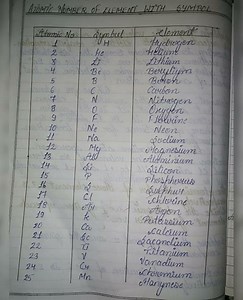 ATOMIC NUMBER OF ELEMENT WITH SYMBOL
Atomic No Symbol Element
1 H Hydrogen
2 He Helium
3 Li Lithium
4 Be Beryllium
5 B Boron
6 C Carbon
7 N Nitrogen
8 O Oxygen
9 F Flourine
10 Ne Neon
11 Na Sodium
12 Mg Magnesium
13 Al Aluminium
14 Si Silicon
15 P Phosphorus
16 S Sulphur
17 Cl Chlorine
18 Ar Argon
19 K Potassium
20 Ca Calcium
21 Sc Scandium
22 Ti Titanium
23 V Vanadium
24 Cr Chromium
25 Mn Manganese